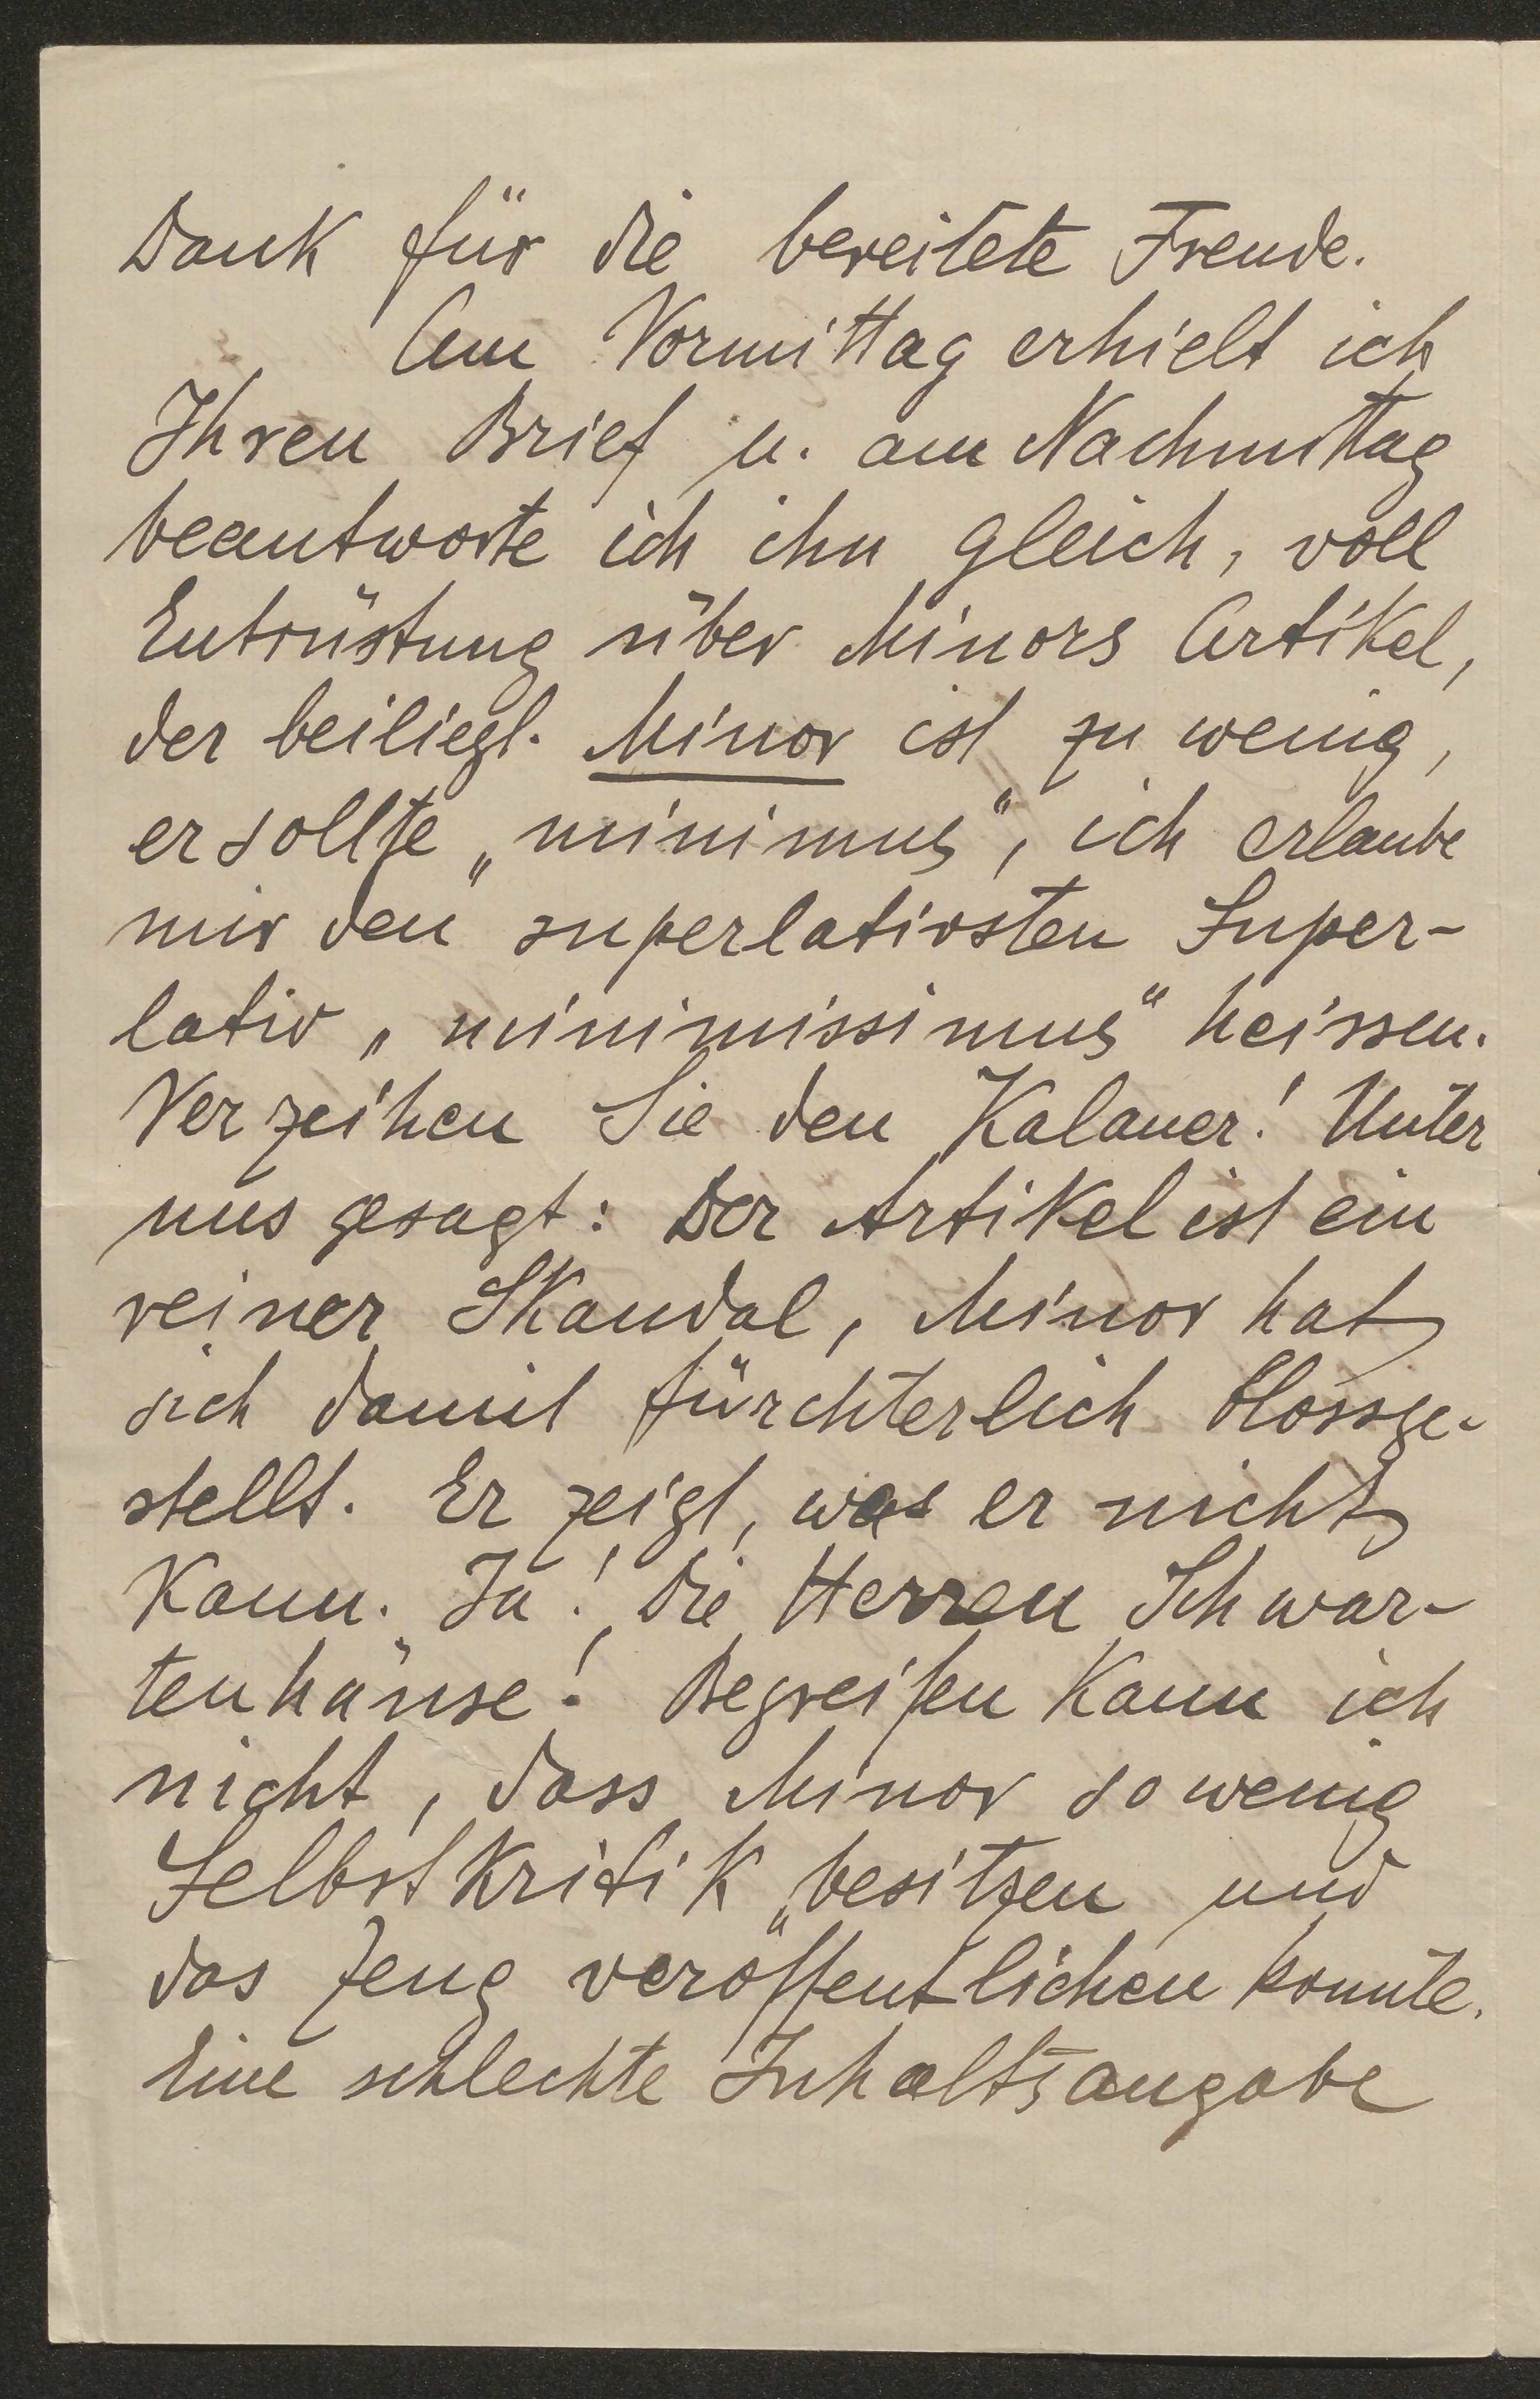 Dank für die bereitete Freude.
Am Vormittag erhielt ich
Ihren Brief u. am Nachmittag
beantworte ich ihn gleich, voll
Entrüstung über Minors Artikel,
der beiliegt. Minor ist zu wenig,
er sollte „minimus“, ich erlaube
mir den superlativsten Super-
lativ „minimissimus“ heissen.
Verzeihen Sie den Kalauer! Unter
uns gesagt: Der Artikel ist ein
reiner Skandal, Minor hat
sich damit fürchterlich blossge-
stellt. Er zeigt, was er nicht
kann. Ja! Die Herren Schwar-
tenhänse! Begreifen kann ich
nicht, dass Minor so wenig
Selbstkritik besitzen und
das Zeug veröffentlichen konnte.
Eine schlechte Inhaltsangabe